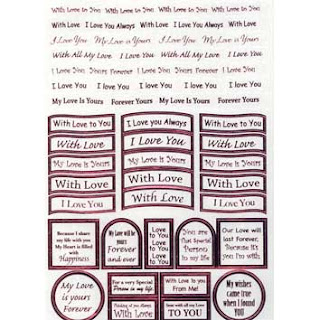 With Love to You With Love to You With Love to You
With Love I Love You Always With Love With Love
I Love You My Love is Yours I Love You With Love
With All My Love I Love You I Love You
I Love You Forever Yours Forever Yours Forever Yours
I Love You I Love You I love You I Love You
My Love is Yours Forever Yours My Love Is Yours Forever Yours
With Love to You I Love you Always With Love to You
With Love I Love You With Love
My Love is Yours My Love is Yours My Love is Yours
With Love With Love With Love
I Love You With Love I Love You
Because I share
my life with you
My Heart is filled
with
Happiness
My Love will be
yours
Forever
and ever
Love
to You
Love
to You
Love
to You
You are
that Special
Person
to my life
Our Love
will last
Forever,
Because it's
you I'm with
My Love
is yours
Forever
For a very Special
Person in my life
With Love is You
From Me!
Thinking of you Always
With Love
Sent with all my Love
TO YOU
My wishes
came true
when I found
YOU